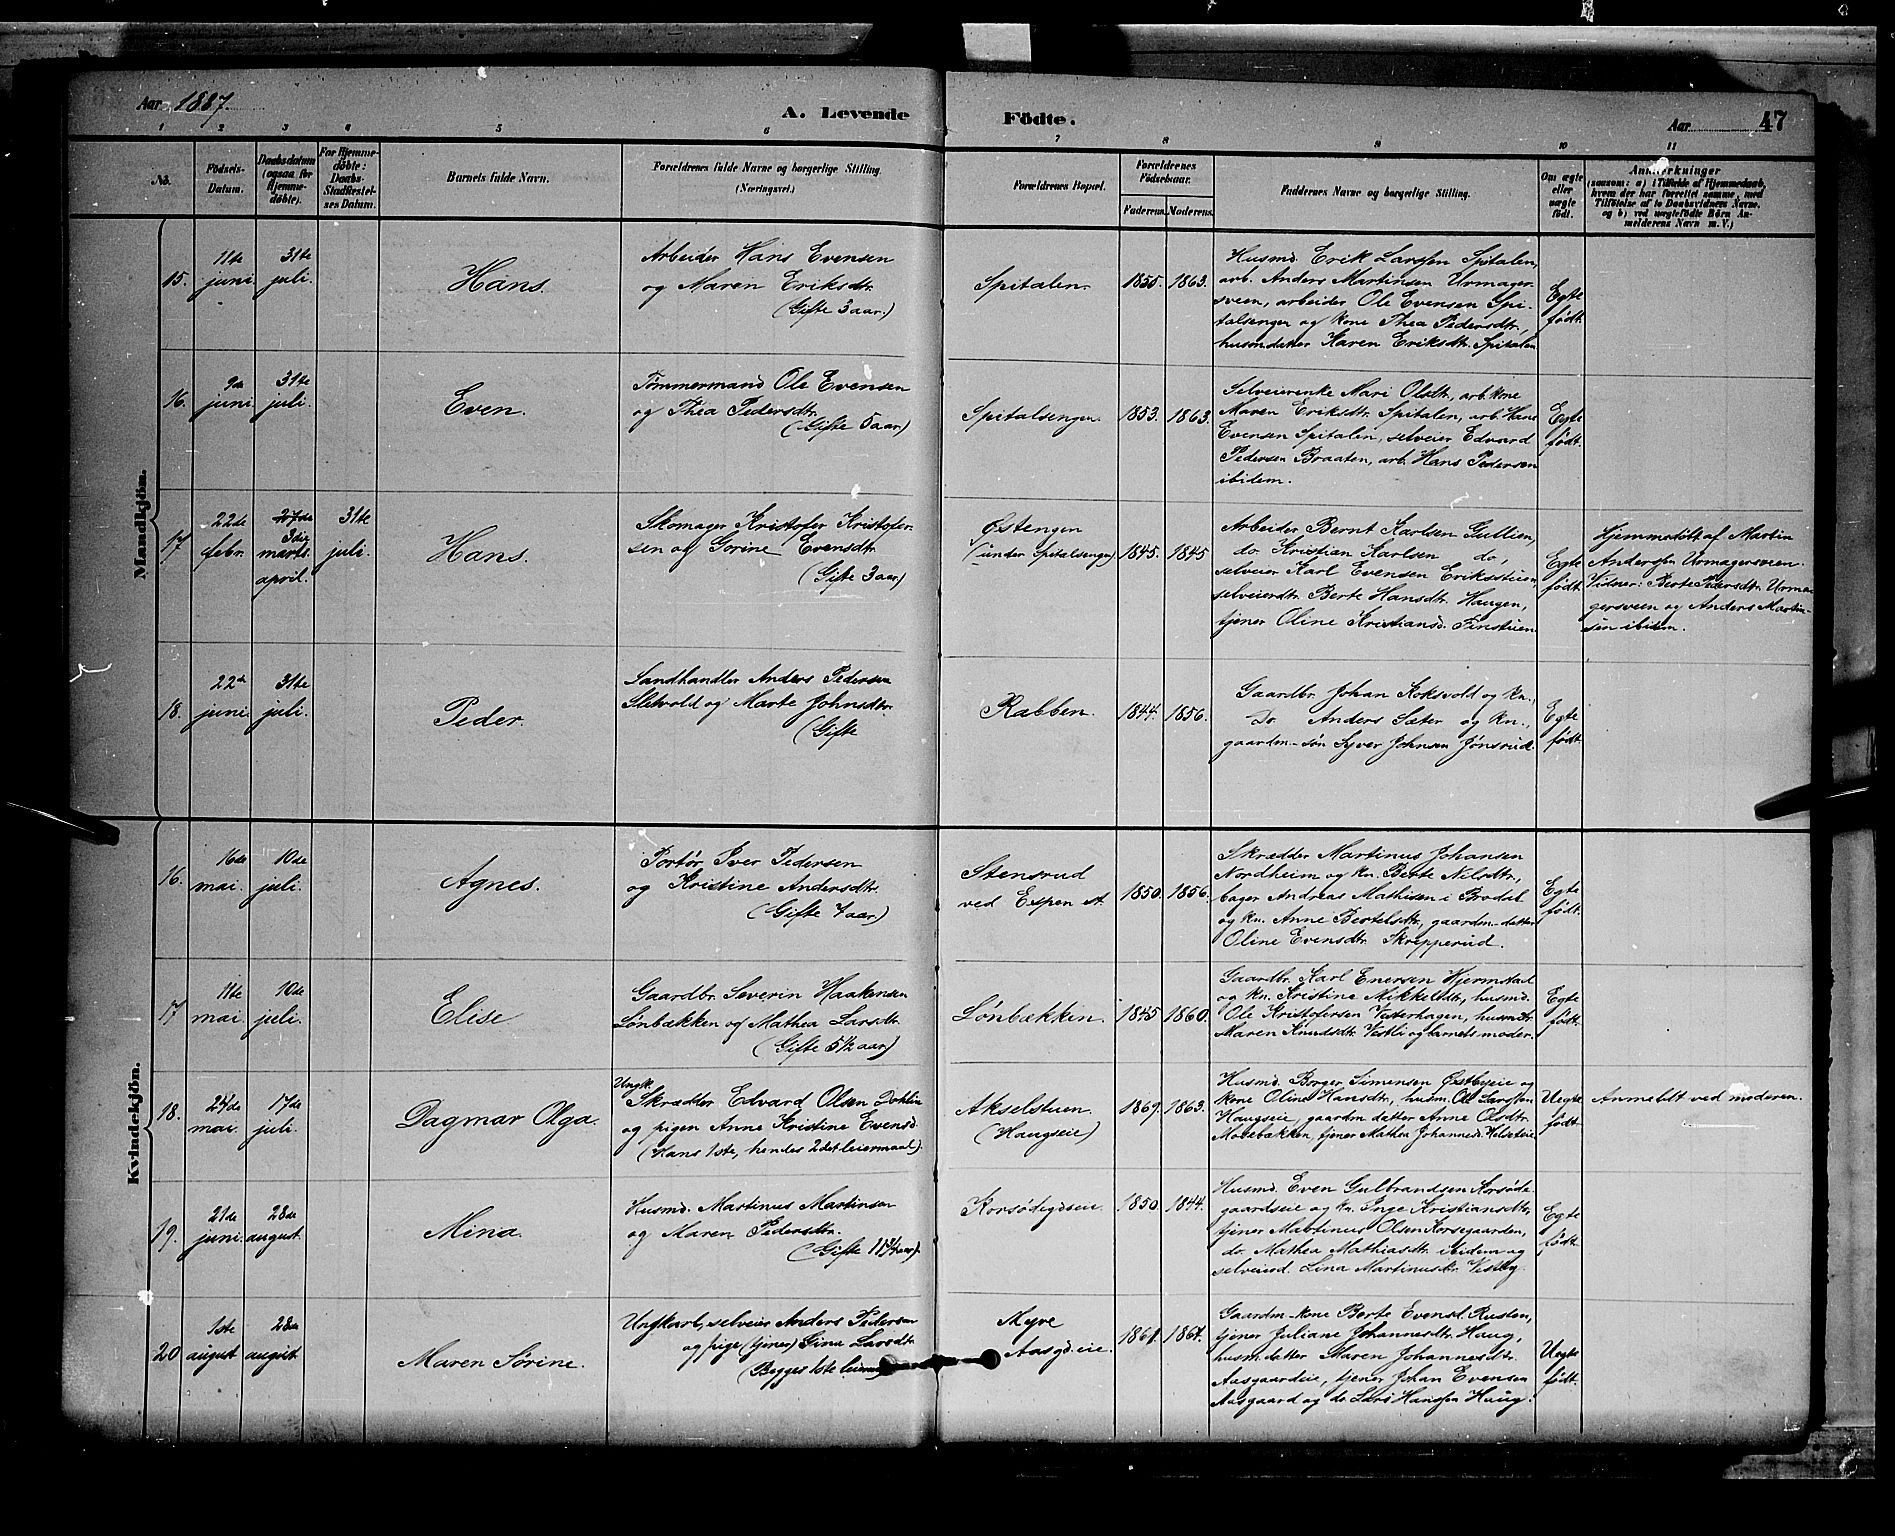 Aar 1887.
A. Levende Födte.
Aar 47
1 2 3 4 5 6 7 8 9 10 11
No.
Födsels-
Datum.
Daabsdatum
(ogsaa for
Hjemme-
döbte).
For Hjemme-
döbte:
Daabs-
Stadfæstel-
ses Datum.
Barnets fulde Navn.
Forældrenes fulde Navne og borgerlige Stilling.
(Næringsvei.)
Forældrenes Bopæl.
Forældrenes
Födselsaar.
Faderens. Moderens.
Faddernes Navne og borgerlige Stilling.
Om ægte
eller
uægte
födt.
Anmærkninger
(saasom: a) i Tilfælde af Hjemmedaab,
hvem der har forrettet samme, med
Tilföielse af to Daabsvidners Navne,
og b) ved uægtefödte Börn An-
melderens Navn m. V.)
Mandkjön.
15.
11te
juni
31te
juli.
Hans.
Arbeider Hans Evensen
og Maren Eriksdtr.
(Gifte 3 aar.)
Spitalen.
1855. 1863.
Husmd. Erik Larssen Spitalen,
arb. Anders Martinsen Urmager-
sveen, arbeider Ole Evensen Spi-
talsengen og kone Thea Pedersdtr.,
husmdatter Karen Eriksdtr. Spitalen
Egte
født.
16.
9de
juni
31te
juli.
Even.
Tømmermand Ole Evensen
og Thea Pedersdtr.
(Gifte 5 aar)
Spitalsengen.
1853. 1863.
Selveierenke Mari Olsdtr., arb. kone
Maren Eriksdtr. Spitalen, arb. Hans
Evensen Spitalen, selveier Edvard
Pedersen Braaten, arb. Hans Pedersen
ibidem.
Egte
født.
17
22de
febr.
27de
3die
marts.
april.
31te
juli.
Hans.
Skomager Kristofer Kristofer-
sen og Gorine Evensdtr.
(Gifte 3 aar)
Østengen
(under Spitalsengen)
1845. 1845
Arbeider Bernt Karlsen Gullien,
do. Kristian Karlsen do,
selveier Karl Evensen Eriksstuen,
selveierdtr. Berte Hansdtr. Haugen,
tjener Oline Kristiansd. Finstuen
Egte
født.
Hjemmedøbt af Martin
Anderssen Urmagersveen.
Vidner: Berte Pedersdtr. Urma-
gersveen og Anders Martin-
sen ibidem.
18.
22de
juni.
31te
juli.
Peder.
Sandhandler Anders Pedersen
Sletvold og Marte Johnsdtr.
(Gifte
Rabben.
1844. 1856.
Gaardbr. Johan Koksvold og kn.,
Do Anders Sæter og kn.,
gaardm-søn Syver Johnsen Jønsrud.
Egte
født.
Kvindekjön.
16.
16de
mai.
10de
juli.
Agnes.
Portør Iver Pedersen
og Kristine Andersdtr.
(Gifte 7 aar)
Stensrud
ved Espen st.
1850. 1856.
Skrædder Martinus Johansen
Nordheim og kn. Berte Nilsdtr.,
bager Andreas Mathisen i Brødsl
og kn. Anne Bertelsdtr., gaardm-datter
Oline Evensdtr. Skrepperud.
Egte
født.
17
11te
mai.
10de
juli.
Elise
Gaardbr. Severin Haakensen
Lønbækken og Mathea Larsdtr.
(Gifte 5 1/2 aar)
Lønbækken.
1845 1860.
Gaardbr. Karl Enersen Hjermstad
og kn. Kristine Mikkelsdtr., husmd.
Ole Kristofersen Vesterhagen, husmdtr.
Maren Knudsdtr. Vestli og barnets moder.
Egte
født.
18.
24de
mai.
17de
juli.
Dagmar Olga.
Ungk.
Skrædder Edvard Olsen Dahlin
og pigen Anne Kristine Evensd.
(Hans 1ste, hendes 2det leiermaal).
Akselstuen.
(Haugseie)
1869. 1863.
Husmd. Borger Simensen Østbyeie og
kone Oline Hansdtr., husm. Ole Larssen
Haugseie, gaardm datter Anne Olsdtr.
Mosebækken, tjener Mathea Johannesd. Helseteie.
Uegte
født.
Anmeldt ved moderen.
19.
21de
juni.
28de
august.
Mina.
Husmd. Martinus Martinsen
og Maren Pedersdtr.
(Gifte 11 3/4 aar).
Korsødegdseie.
1850. 1844.
Husmd. Even Gulbrandsen Korsøde
gaardseie og kn. Inge Kristiansdtr.,
tjener Martinus Olsen Korsegaarden,
do. Mathea Mathiasdtr. ibidem og
selveierd. Lina Martinusdtr. Vestby.
Egte
født.
20
1ste
august
28de
august.
Maren Sørine.
Ungkarl, selveier Anders Pedersen
og pige (tjener) Gina Larsdtr.
(Begges 1ste leierm
Myre
Aasgdeie.
1861. 1867.
Gaardm-kone Berte Evensd. Rusten,
tjener Juliane Johannesdtr. Haug,
husm.datter Maren Johannesdtr.
Aasgaardeie, tjener Johan Evensen
Aasgaard og do. Lars Hanssen Haug.
Uegte
født.